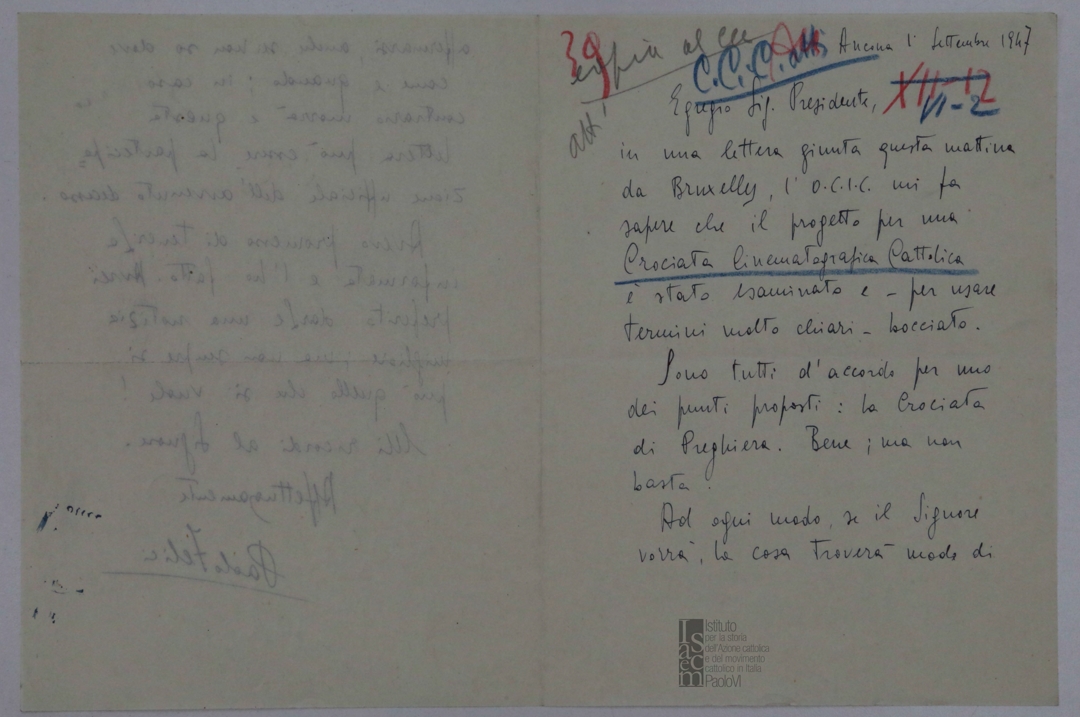 39
copia al CCC
C.C.C. atti
atti
Ancona 1° Settembre 1947
XII-12
VI-2
Egregio Sig. Presidente,
in una lettera giunta questa mattina
da Bruxelles, l'O.C.I.C. mi fa
sapere che il progetto per una
Crociata Cinematografica Cattolica
è stato esaminato e - per usare
termini molto chiari - bocciato.
Sono tutti d'accordo per uno
dei punti proposti: la Crociata
di Preghiera. Bene; ma non
basta.
Ad ogni modo, se il Signore
vorrà, la cosa troverà modo di
affermarsi, anche se non so dove
come e quando; in caso
contrario morrà e questa
lettera può essere la partecipa=
zione ufficiale dell'avvenuto decesso.
Avevo promesso di tenerLa
informata e l'ho fatto. Avrei
preferito darLe una notizia
migliore; ma non sempre si
può quello che si vuole!
Mi ricordi al Signore.
Affettuosamente
Isacem
Istituto
per la storia
dell'Azione cattolica
e del movimento
cattolico in Italia
PaoloVI